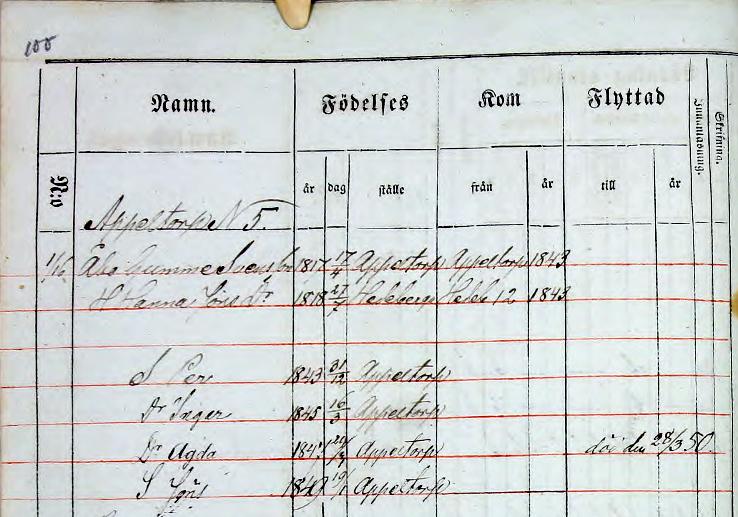 100
Namn. Födelses Kom Flyttad Inn.
N:o år dag ställe från år till år Skrifning.
Appeltorp N 5.
1/16 Åbo Gumme Svensson 1817 17/4 Appeltorp Appeltorp 1843
H Hanna Jöns Dr 1818 27/7 Hedeberga 12 1843
S Per 1843 31/12 Appeltorp
Dr Inger 1845 16/3 Appeltorp
Dr Agda 184 Appeltorp död den 28/3 50.
S Jöns 1849 19/1 Appeltorp